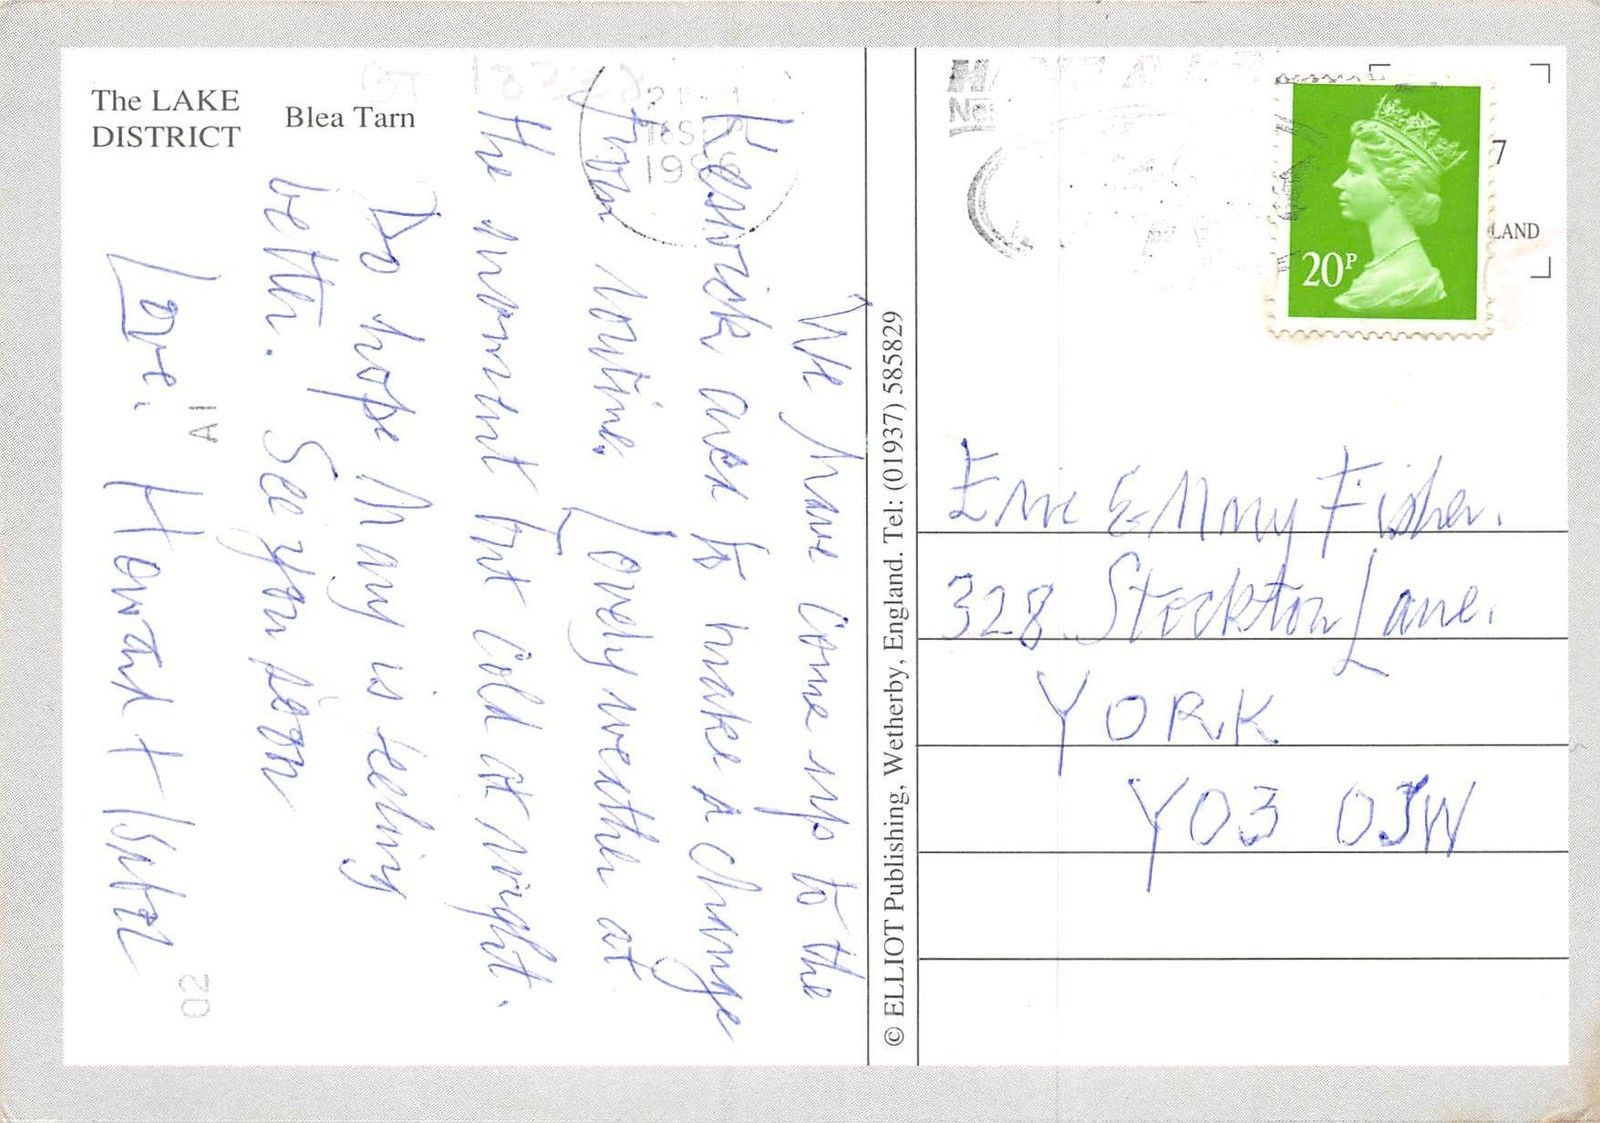 The LAKE
DISTRICT
Blea Tarn
We have come up to the
Keswick area to make a change
from routine. Lovely weather at
the moment but cold at night.
Do hope Mary is feeling
better. See you soon
Love. Howard + Isabel
A1
02
© ELLIOT Publishing, Wetherby, England. Tel: (01937) 585829
18 SEP
19
20P
7
LAND
Eric & Mary Fisher.
328 Stockton Lane.
YORK
YO3 0JW